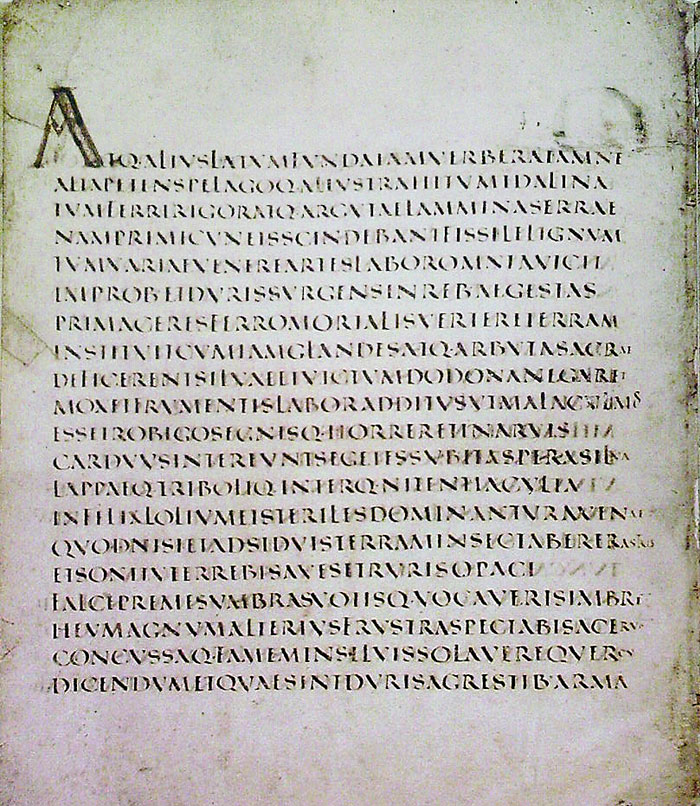 ATQALIUSLATUMFUNDAIAMVERBERATAMNE
ALTAPETENSPELAGOQALIUSTRAHITUMIDALINA
TUMFERRIRIGORATQARGUTAELAMMINASERRAE
NAMPRIMICUNEISSCINDEBANTFISSILELIGNUM
TUMVARIAEVENEREARTESLABOROMNIAVICIT
IMPROBETDURISSURGENSINREBAEGESTAS
PRIMACERESFERROMORTALISVERTERETERRAM
INSTITUITCUMIAMGLANDESATQARBUTASACRAE
DEFICERENTSILUAEETVICTUMDODONANEGARET
MOXETFRUMENTISLABORADDITUSUTMALACULMOS
ESSETROBIGOSEGNISQHORRERETINARVIS
CARDUUSINTEREUNTSEGETESSUBITASPERASILVA
LAPPAEQTRIBOLIQINTERQNITENTIACULTA
INFELIXLOLIUMETSTERILESDOMINANTURAVENAE
QUODNISIETADSIDUISTERRAMINSECTABERERASTRIS
ETSONITUTERREBISAVESETRURISOPACI
FALCEPREMESUMBRASVOTISQVOCAVERISIMBRE
HEUMAGNUMALTERIUSFRUSTRASPECTABISACERUO
CONCUSSAQFAMEMINSILUISSOLAVEREQUERCU
DICENDUMETQUAESINTDURISAGRESTIBARMA